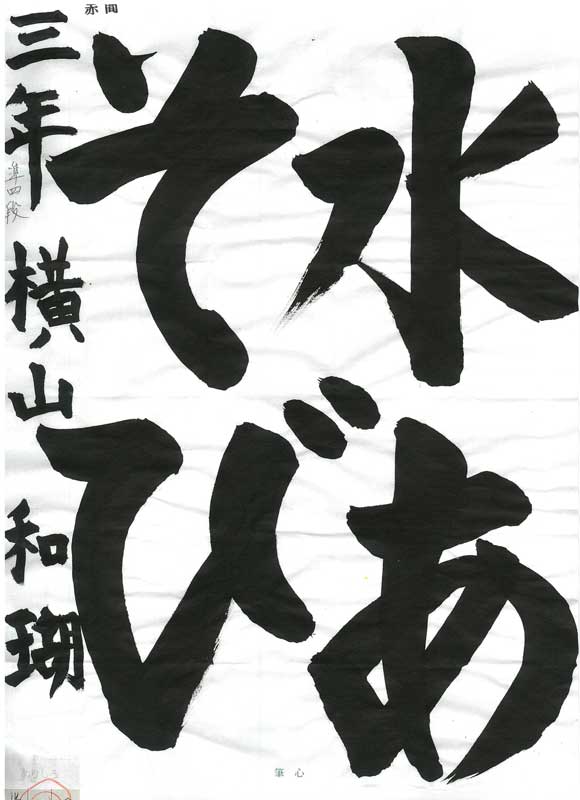 赤間
水あ
そび
三年 横山 和瑚
準四段
筆心